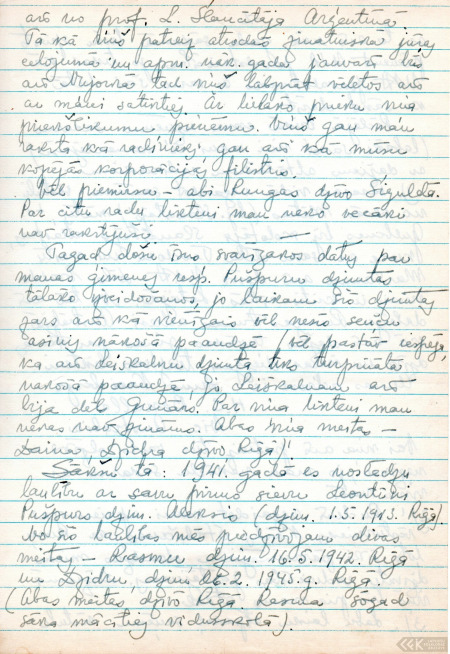 arī no prof. L. Slaucītāja Argentīnā
Tā kā viņš patreiz atrodas zinātniskā jūras
ceļojumā un apm. nāk. gada janvārī būs
arī Ņujorkā, tad viņš labprāt vēlētos arī
ar mani satikties. Ar lielāko prieku viņa
priekšlikumu pieņēmu. Viņš gan man
raksta kā radinieks gan arī kā mūsu
kopējās korporācijas filistrs.
Vēl piemirsu – abi Rungas dzīvo Siguldā.
Par citu radu likteni man nekā vecāki
nav rakstījuši.
Tagad došu īsus svarīgākos datus par
manas ģimenes resp. Pušpuru dzimtas
tālāko izveidošanos, jo laikam šīs dzimtas
zars arī kā vienīgais vēl nesīs senču
asinis nākošā paaudzē (vēl pastāv iespēja,
ka arī Leiškalnu dzimta tiks turpināta
nākošā paaudzē, jo Leiškalnam arī
bija dēls Gunārs. Par viņa likteni man
nekas nav zināms. Abas viņa meitas –
Daina, Dzidra dzīvo Rīgā).
Sākšu tā: 1941. gadā es noslēdzu
laulību ar savu pirmo sievu Leontīni
Pušpuru dzim. Aleksis (dzim. 1.5.1913. Rīgā).
No šīs laulības mēs piedzīvojām divas
meitas – Rasmu dzim. 16.5.1942. Rīgā
un Dzidru, dzim. 26.2.1945.g. Rīgā.
(Abas meitas dzīvo Rīgā. Rasma šogad
sāka mācīties vidusskolā).